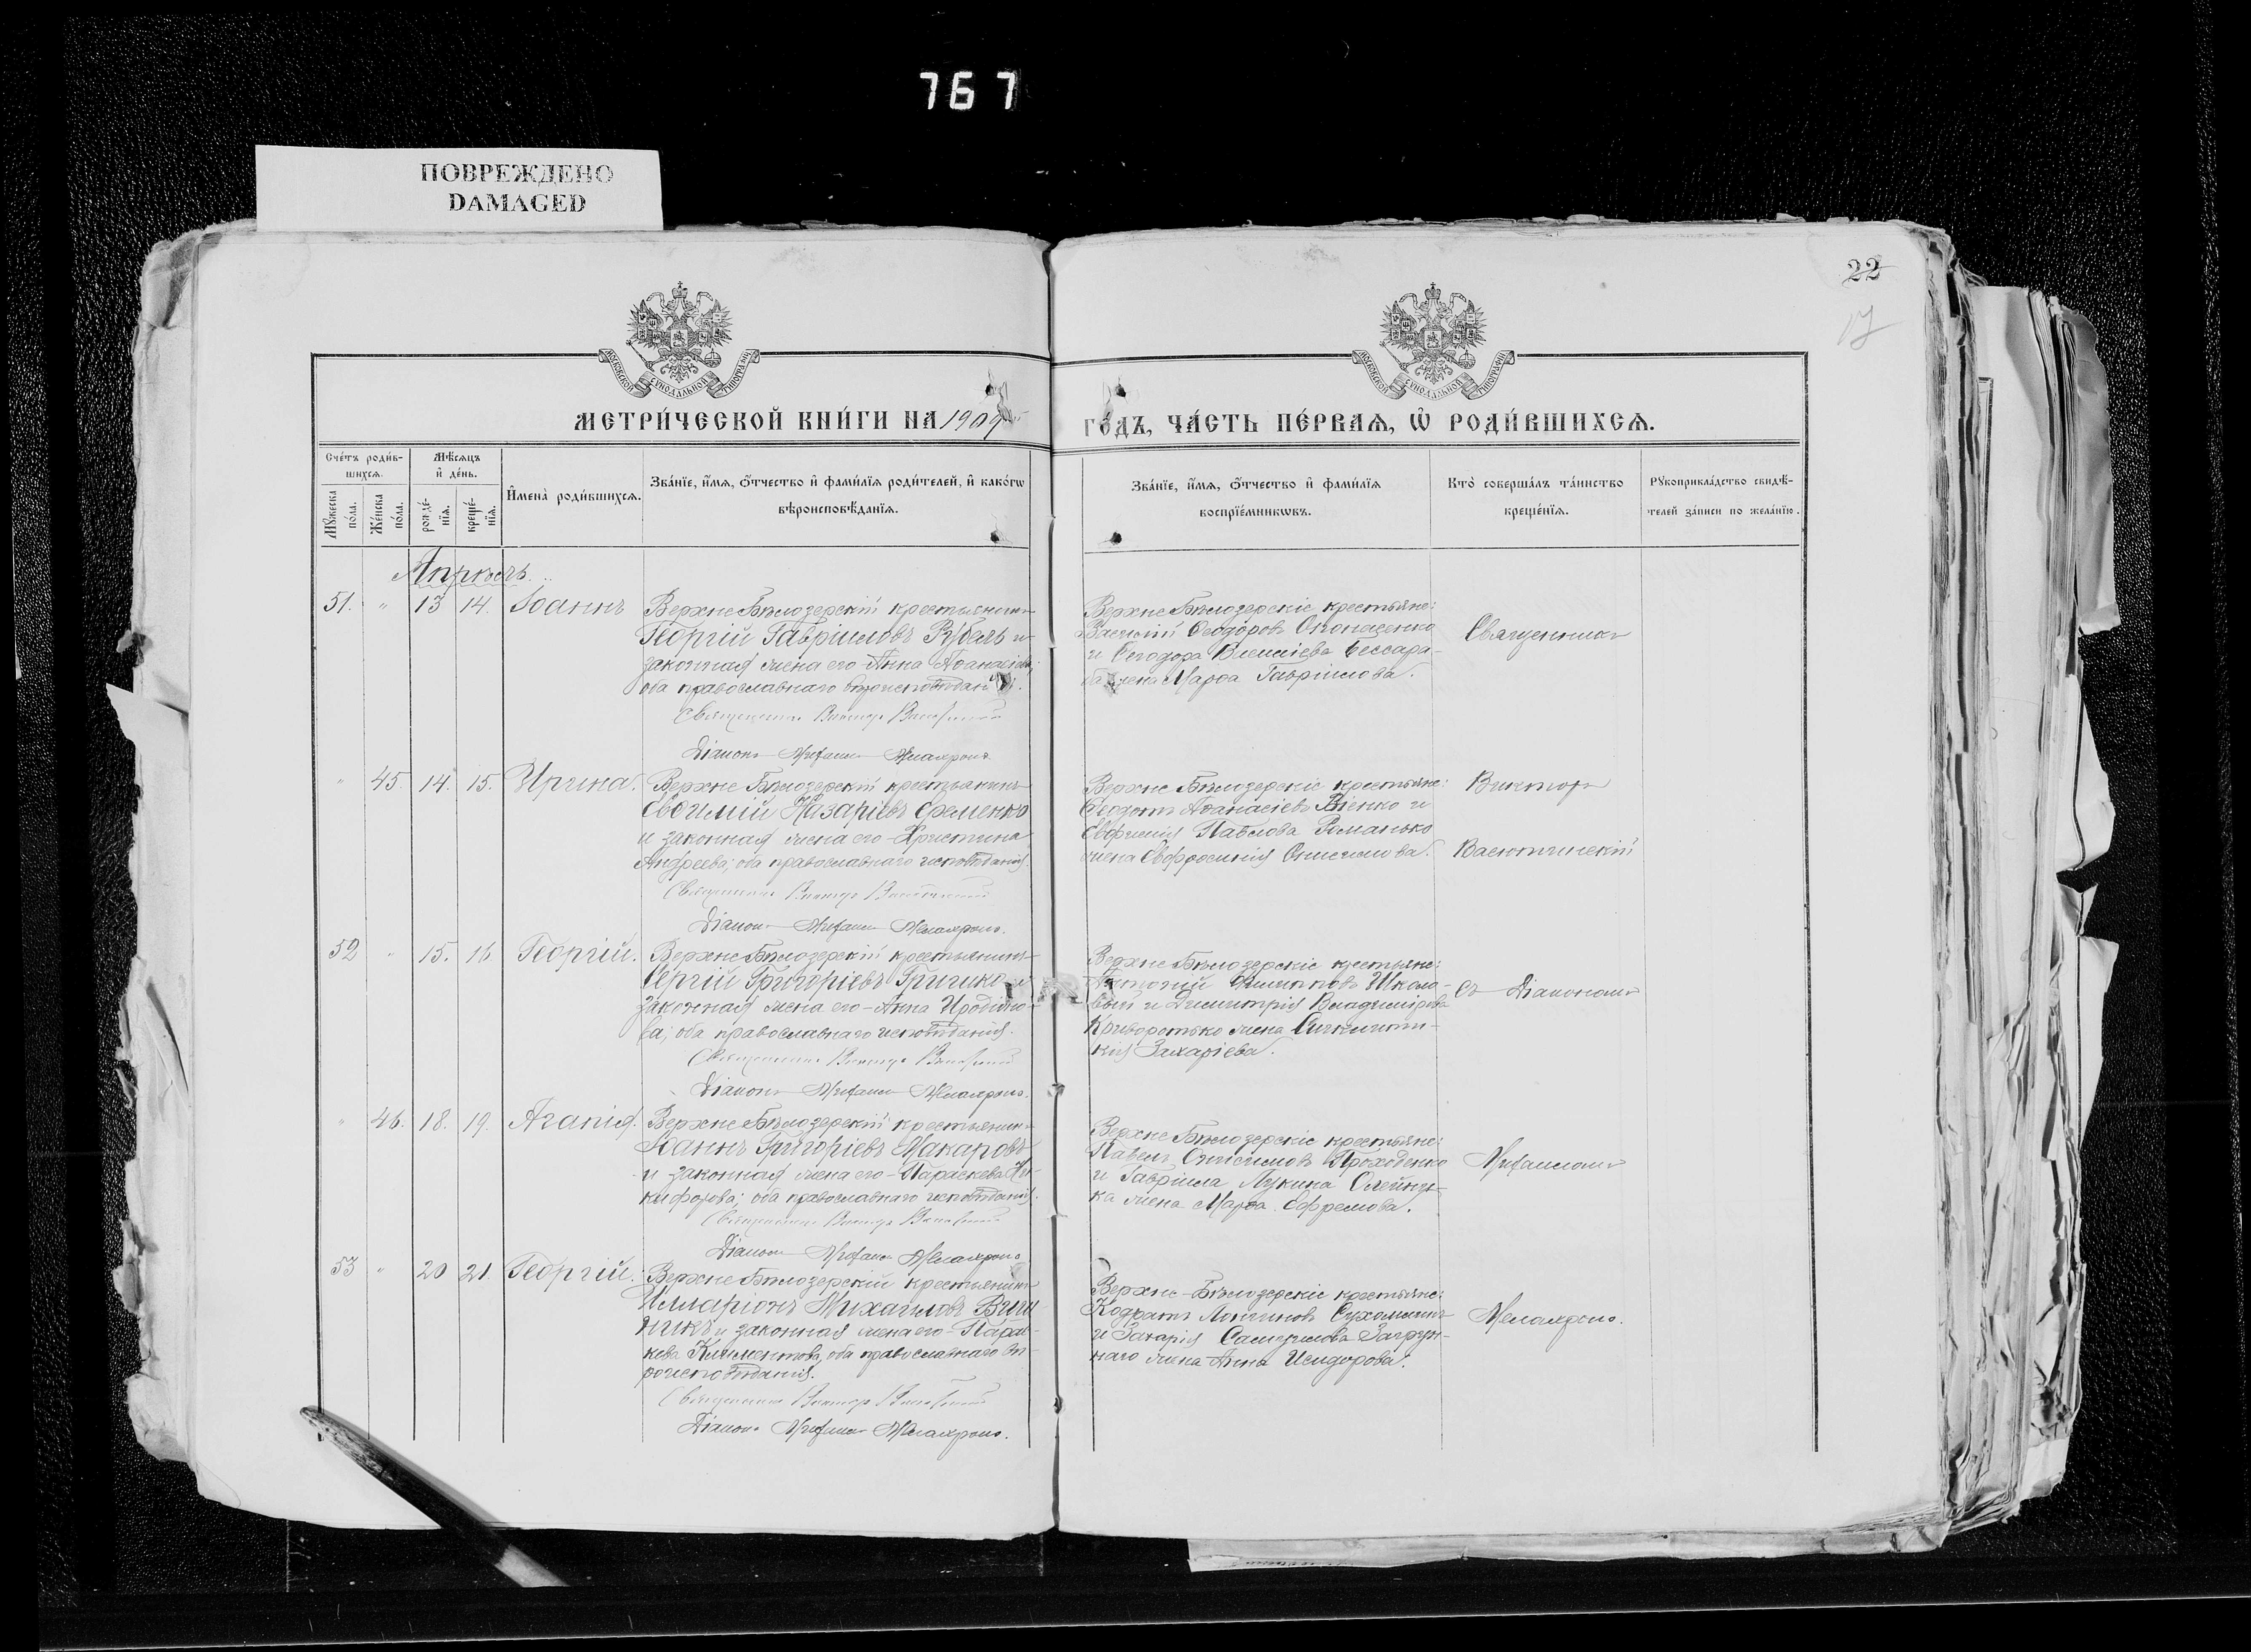 767
ПОВРЕЖДЕНО
DAMAGED
22
17
МОСКОВСКОЙ СѴНОДАЛЬНОЙ ТИПОГРАФІИ
МОСКОВСКОЙ СѴНОДАЛЬНОЙ ТИПОГРАФІИ
МЕТРИ́ЧЕСКОЙ КНИ́ГИ НА 1909
ГО́ДЪ, ЧА́СТЬ ПЕ́РВАѦ, Ѡ҆ РОДИ́ВШИХСѦ.
Сче́тъ роди́в-
шихсѧ.
Мꙋ́жеска по́ла.
Же́нска по́ла.
Мѣ́сѧцъ
и҆ де́нь.
рожде́-
нїѧ.
креще́-
нїѧ.
И҆мена̀ роди́вшихсѧ.
Зва́нїе, и҆́мѧ, ѻ҆́тчество и҆ фами́лїѧ роди́телей, и҆ како́гѡ
вѣроисповѣ́данїѧ.
Зва́нїе, и҆́мѧ, ѻ҆́тчество и҆ фами́лїѧ
воспрїе́мникѡвъ.
Кто̀ соверша́лъ та́инство
креще́нїѧ.
Рꙋкоприкла́дство свидѣ́-
телей за́писи по жела́нїю.
Апрѣль.
51. " 13 14. Іоаннъ
Верхне Бѣлозерскій крестьянинъ
Георгій Гавріиловъ Рубель и
законная жена его Анна Аѳанасіева;
оба православнаго вѣроисповѣданія.
Священникъ Викторъ
Діаконъ Мелахроно.
Верхне Бѣлозерскіе крестьяне:
Василій Ѳеодоровъ Опонасенко
и Ѳеодора Бессара-
ба жена Марѳа Гавріилова.
Священникъ
" 45. 14. 15. Ирина.
Верхне Бѣлозерскій крестьянинъ
Евѳимій Назаріевъ Еременко
и законная жена его Христина
Андреева; оба православнаго исповѣданія.
Священникъ Викторъ
Діаконъ Мелахроно.
Верхне Бѣлозерскіе крестьяне:
Ѳеодотъ Аѳанасіевъ и
Евфимія Павлова Романько
жена Евфросинія Онисимова.
Викторъ
52 " 15. 16 Георгій.
Верхне Бѣлозерскій крестьянинъ
Сергій Григоріевъ Гришко и
законная жена его Анна Иродіоно-
ва, оба православнаго исповѣданія.
Священникъ Викторъ
Діаконъ Мелахроно.
Верхне Бѣлозерскіе крестьяне:
Антоній Филипповъ Школо-
вый и Димитрія Владимірова
Криворотько жена
кія Захаріева.
съ Діакономъ
" 46. 18. 19. Агапія.
Верхне Бѣлозерскій крестьянинъ
Іоаннъ Григоріевъ Макаровъ
и законная жена его Параскева Ни-
кифорова; оба православнаго исповѣданія.
Священникъ Викторъ
Діаконъ Мелахроно.
Верхне Бѣлозерскіе крестьяне:
Павелъ Онисимовъ Проходенко
и Гавріила Лукина Олейни-
ка жена Марѳа Ефремова.
53 " 20 21. Георгій.
Верхне Бѣлозерскій крестьянинъ
Илларіонъ Михаиловъ Вин-
никъ и законная жена его Парас-
кева Климентова, оба православнаго вѣ-
роисповѣданія.
Священникъ Викторъ
Діаконъ Мелахроно.
Верхне-Бѣлозерскіе крестьяне:
Кодратъ Логиновъ Сухомлинъ
и Захарія
жена Анна Исидорова.
Мелахроно.